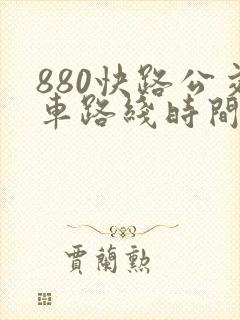 880快路公交
車路綫時間
賈蘭勲